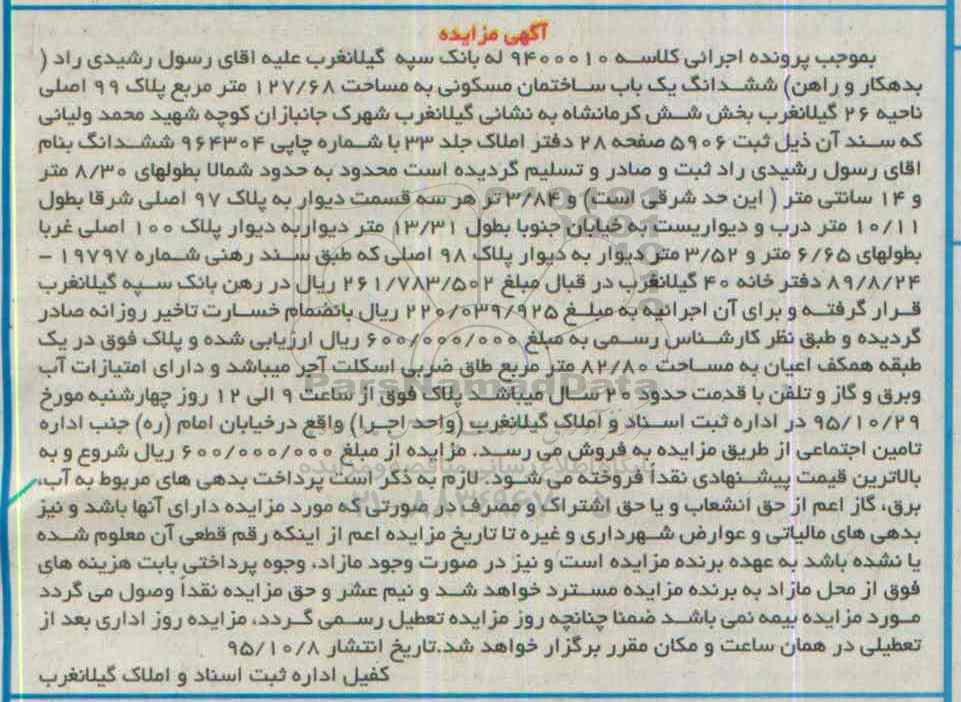 آگهی مزایده
بموجب پرونده اجرائی کلاسه ۹۴۰۰۰۱۰ له بانک سپه گیلانغرب علیه اقای رسول رشیدی راد (
بدهکار و راهن) ششدانگ یک باب ساختمان مسکونی به مساحت ۱۲۷/۶۸ متر مربع پلاک ۹۹ اصلی
ناحیه ۲۶ گیلانغرب بخش شش کرمانشاه به نشانی گیلانغرب شهرک جانبازان کوچه شهید محمد ولیانی
که سند آن ذیل ثبت ۵۹۰۶ صفحه ۲۸ دفتر املاک جلد ۳۳ با شماره چاپی ۹۶۴۳۰۴ ششدانگ بنام
اقای رسول رشیدی راد ثبت و صادر و تسلیم گردیده است محدود به حدود شمالا بطولهای ۸/۳۰ متر
و ۱۴ سانتی متر ( این حد شرقی است) و ۳/۸۴ تر هر سه قسمت دیوار به پلاک ۹۷ اصلی شرقا بطول
۱۰/۱۱ متر درب و دیواریست به خیابان جنوبا بطول ۱۳/۳۱ متر دیواربه دیوار پلاک ۱۰۰ اصلی غربا
بطولهای ۶/۶۵ متر و ۳/۵۲ متر دیوار به دیوار پلاک ۹۸ اصلی که طبق سند رهنی شماره ۱۹۷۹۷ –
۸۹/۸/۲۴ دفتر خانه ۴۰ گیلانغرب در قبال مبلغ ۲۶۱/۷۸۳/۵۰۲ ریال در رهن بانک سپه گیلانغرب
قرار گرفته و برای آن اجرائیه به مبلغ ۲۲۰/۰۳۹/۹۲۵ ریال بانضمام خسارت تاخیر روزانه صادر
گردیده و طبق نظر کارشناس رسمی به مبلغ ۶۰۰/۰۰۰/۰۰۰ ریال ارزیابی شده و پلاک فوق در یک
طبقه همکف اعیان به مساحت ۸۲/۸۰ متر مربع طاق ضربی اسکلت آجر میباشد و دارای امتیازات آب
وبرق و گاز و تلفن با قدمت حدود ۲۰ سال میباشد پلاک فوق از ساعت ۹ الی ۱۲ روز چهارشنبه مورخ
۹۵/۱۰/۲۹ در اداره ثبت اسناد و املاک گیلانغرب (واحد اجرا) واقع درخیابان امام (ره) جنب اداره
تامین اجتماعی از طریق مزایده به فروش می رسد. مزایده از مبلغ ۶۰۰/۰۰۰/۰۰۰ ریال شروع و به
بالاترین قیمت پیشنهادی نقداً فروخته می شود. لازم به ذکر است پرداخت بدهی های مربوط به آب،
برق، گاز اعم از حق انشعاب و یا حق اشتراک و مصرف در صورتی که مورد مزایده دارای آنها باشد و نیز
بدهی های مالیاتی و عوارض شهرداری و غیره تا تاریخ مزایده اعم از اینکه رقم قطعی آن معلوم شده
یا نشده باشد به عهده برنده مزایده است و نیز در صورت وجود مازاد، وجوه پرداختی بابت هزینه های
فوق از محل مازاد به برنده مزایده مسترد خواهد شد و نیم عشر و حق مزایده نقداً وصول می گردد
مورد مزایده بیمه نمی باشد ضمنا چنانچه روز مزایده تعطیل رسمی گردد، مزایده روز اداری بعد از
تعطیلی در همان ساعت و مکان مقرر برگزار خواهد شد.تاریخ انتشار ۹۵/۱۰/۸
کفیل اداره ثبت اسناد و املاک گیلانغرب
ParsNamadData